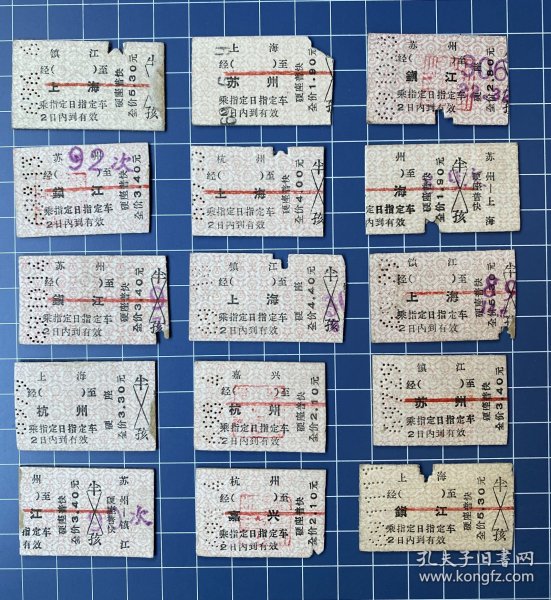 镇江
经( )至
上海
乘指定日指定车
2日内到有效
硬座普快
全价5.30元
半
孩
上海
经( )至
苏州
乘指定日指定车
2日内到有效
硬座普快
全价1.90元
苏州
经( )至
鎮江
乘指定日指定车
2日内到有效
苏
经( )至
鎮江
乘指定日指定车
2日内到有效
92次
硬座普快
全价3.40元
杭州
经( )至
上海
乘指定日指定车
2日内到有效
硬座普快
全价4.00元
半
孩
州
)至
海
指定日指定车
日内到有效
硬座普快
全价1.90元
半
孩
上海—苏州
苏州
经( )至
鎮江
乘指定日指定车
2日内到有效
硬座普快
全价3.40元
半
孩
镇江
经( )至
上海
乘指定日指定车
2日内到有效
硬座
全价4.40元
半
孩
镇江
经( )至
上海
乘指定日指定车
2日内到有效
硬座普快
半
孩
上海
经( )至
杭州
乘指定日指定车
2日内到有效
硬座
全价3.30元
半
孩
嘉兴
经( )至
杭州
乘指定日指定车
2日内到有效
硬座普快
全价2.10元
镇江
经( )至
苏州
乘指定日指定车
2日内到有效
硬座普快
全价3.40元
州
)至
江
指定车
有效
硬座普快
全价3.40元
半
孩
苏州—镇江
次
杭州
经( )至
嘉兴
乘指定日指定车
2日内到有效
硬座普快
全价2.10元
上海
经( )至
鎮江
乘指定日指定车
2日内到有效
硬座普快
全价5.30元
半
孩
孔夫子旧书网
www.kongfz.com